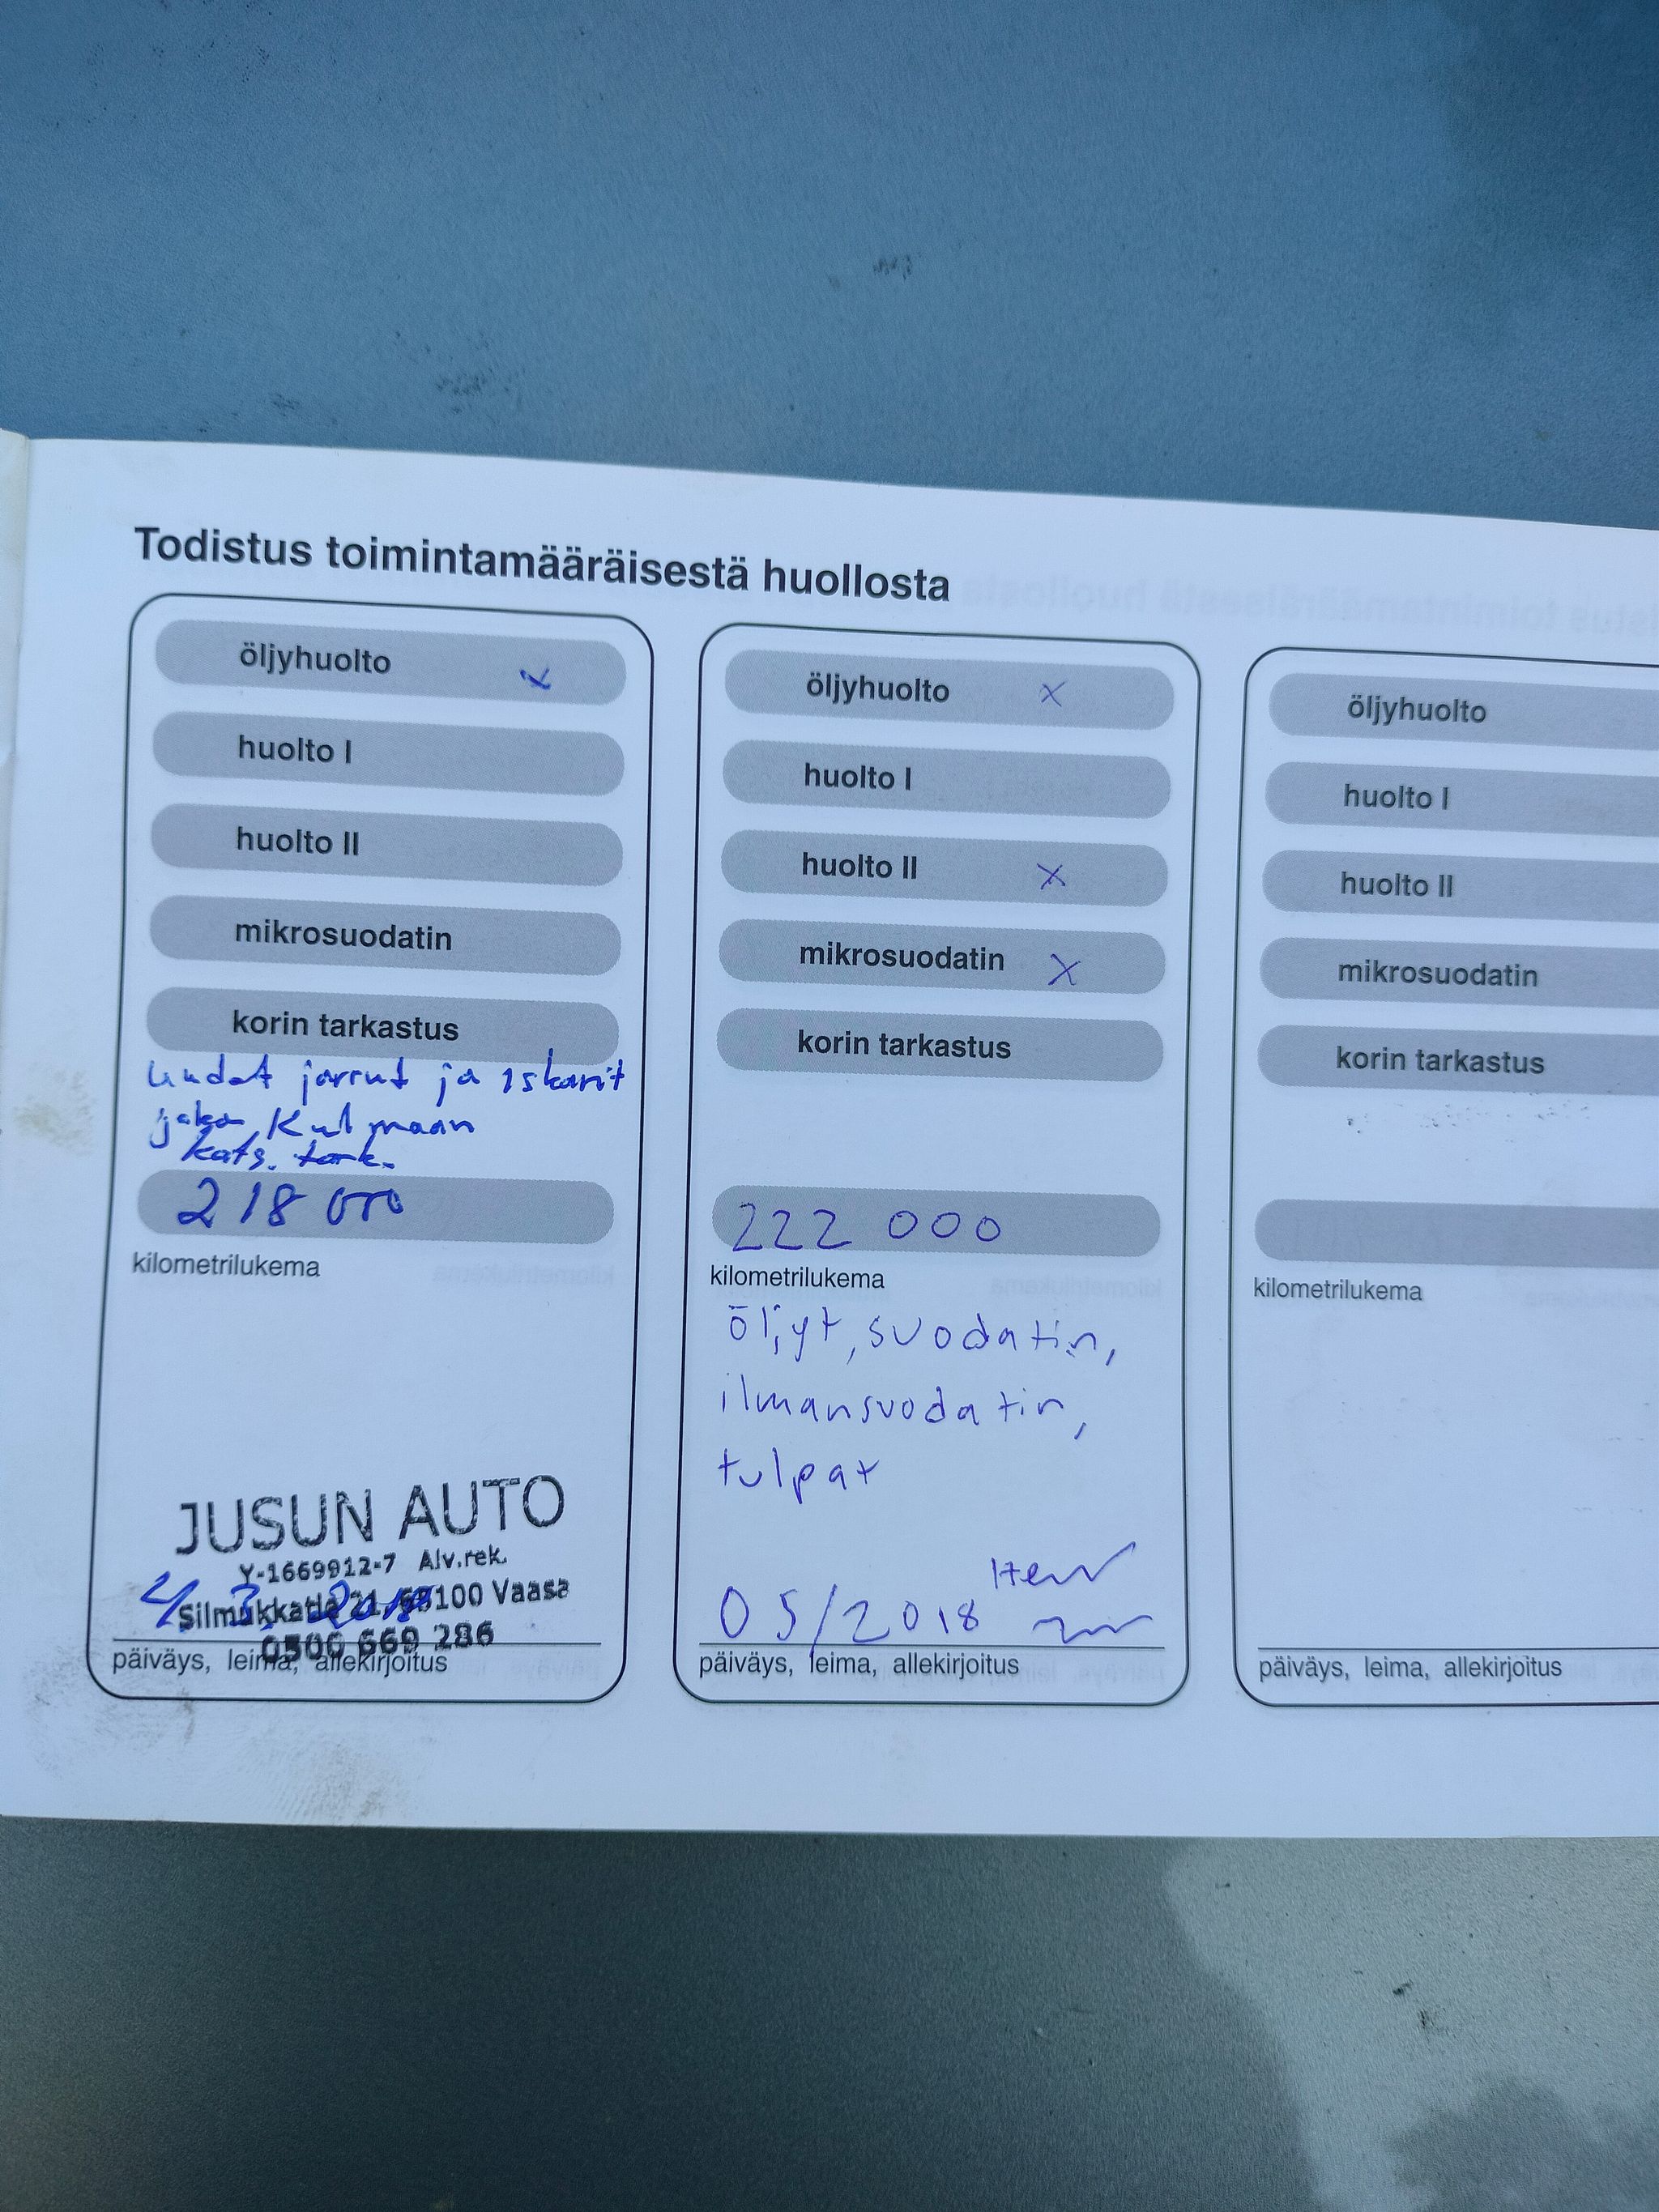 Todistus toimintamääräisestä huollosta
öljyhuolto x
huolto I
huolto II
mikrosuodatin
korin tarkastus
uudet jarrut ja iskarit
jako Kulmaan
kats. tark.
218 000
kilometrilukema
JUSUN AUTO
Y-1669912-7 Alv.rek.
Silmukkatie 21, 65100 Vaasa
0500 669 286
päiväys, leima, allekirjoitus
öljyhuolto x
huolto I
huolto II x
mikrosuodatin x
korin tarkastus
222 000
kilometrilukema
öljyt, suodatin,
ilmansuodatin,
tulpat
05/2018
päiväys, leima, allekirjoitus
öljyhuolto
huolto I
huolto II
mikrosuodatin
korin tarkastus
kilometrilukema
päiväys, leima, allekirjoitus